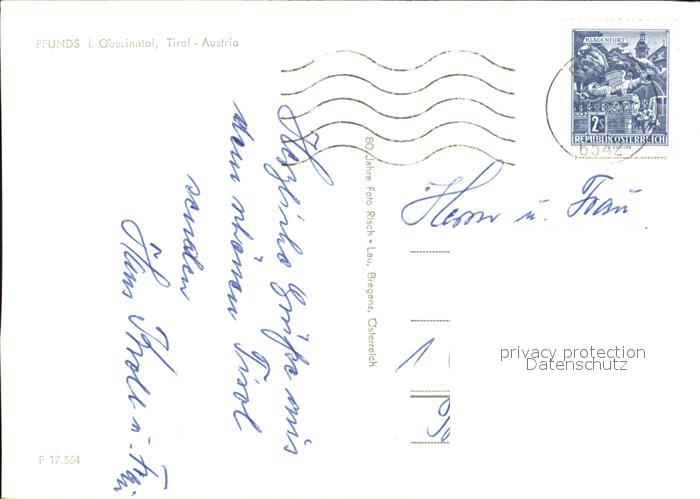 PFUNDS i. Oberinntal, Tirol - Austria
KLAGENFURT
2S
REPUBLIK ÖSTERREICH
6542
Herrn u. Frau
Herzliche Grüße aus
dem schönen Tirol
senden
Hans
80 Jahre Foto Risch • Lau, Bregenz, Österreich
1
privacy protection
Datenschutz
F 17.564